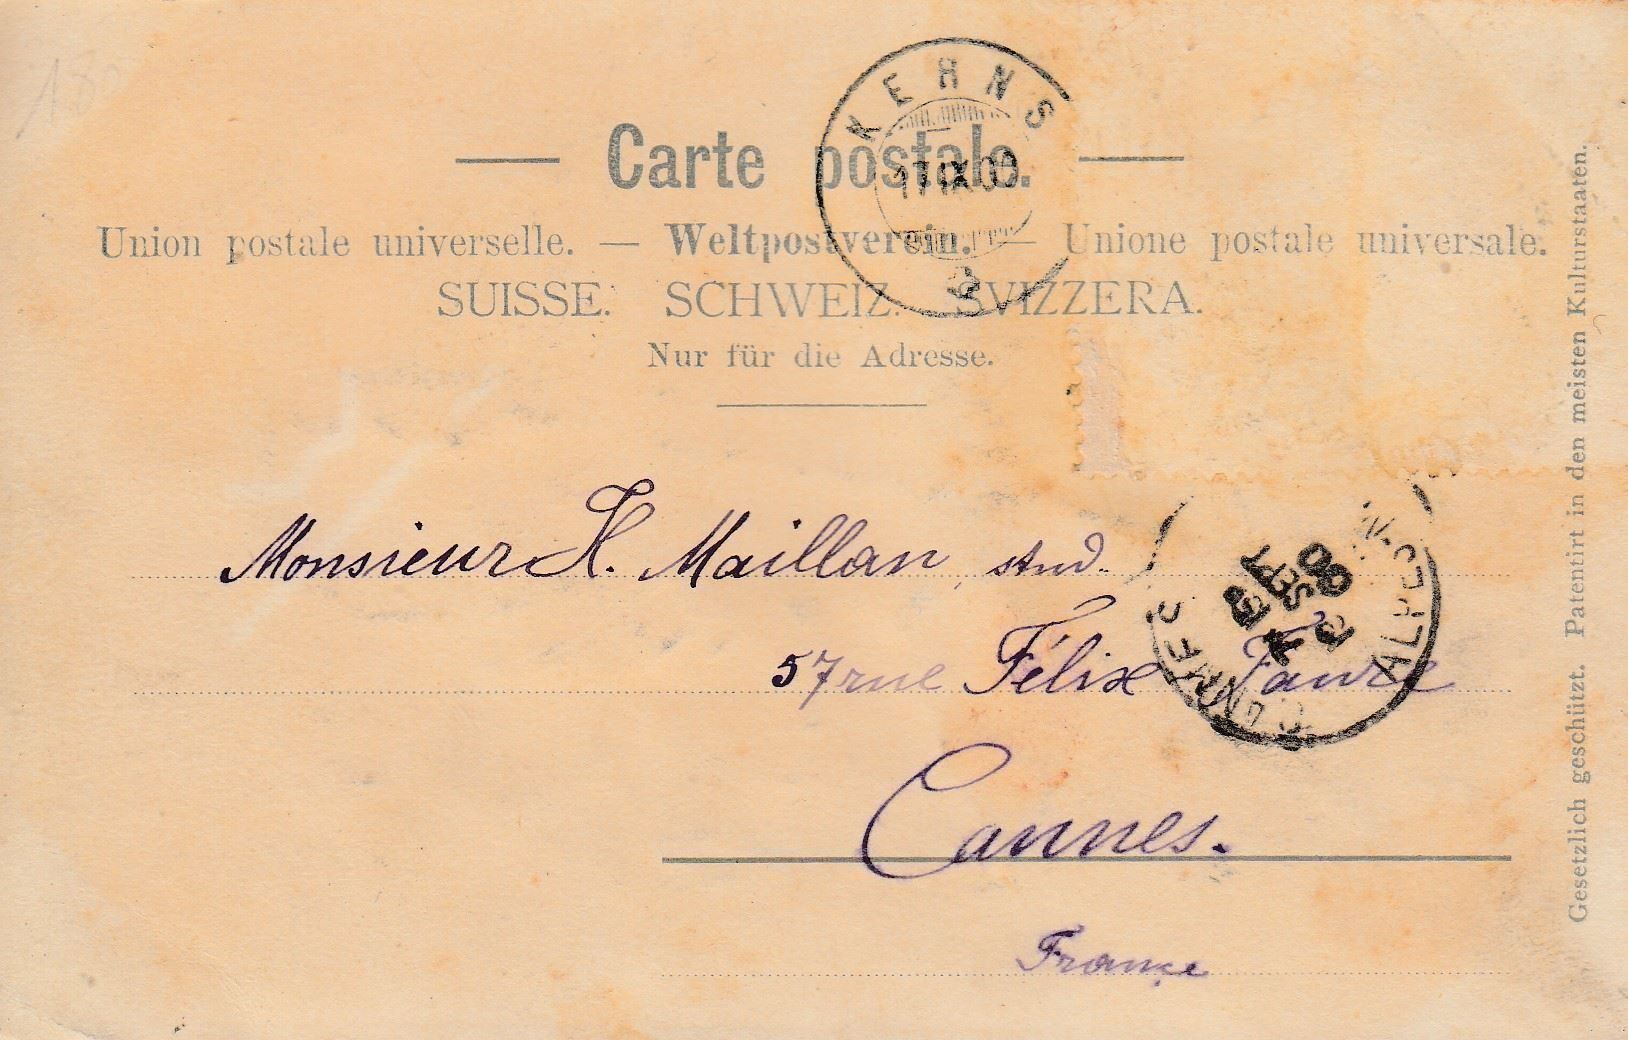 KERNS
17 IX 00
Carte postale.
Union postale universelle. — Weltpostverein. — Unione postale universale.
SUISSE. SCHWEIZ. SVIZZERA.
Nur für die Adresse.
Monsieur H. Maillan, stud.
57 rue Félix Faure
Cannes.
France
SEPT
00
ALPES
Gesetzlich geschützt. Patentirt in den meisten Kulturstaaten.